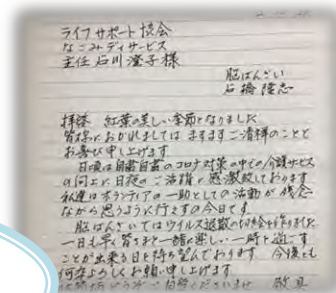 ライフサポート協会
なごみデイサービス
主任 石川 澄子 様
脳ばんざい
石橋 隆志
拝啓 紅葉の美しい季節となりました
皆様におかれましてはますますご清祥のことと
お喜び申し上げます
日頃は自粛自粛のコロナ対策の中での介護サービス
の向上に日夜のご活躍に感激致しております
私達はボランティアの一助としての活動が残念
ながら思うように行えずの今日です
脳ばんざいではウイルス退散の切り絵を作りました
一日も早く皆さまと一緒に楽しい一時を過ごす
ことが出来る日を待ち望んでおります 今後とも
何卒よろしくお願い申し上げます
敬具